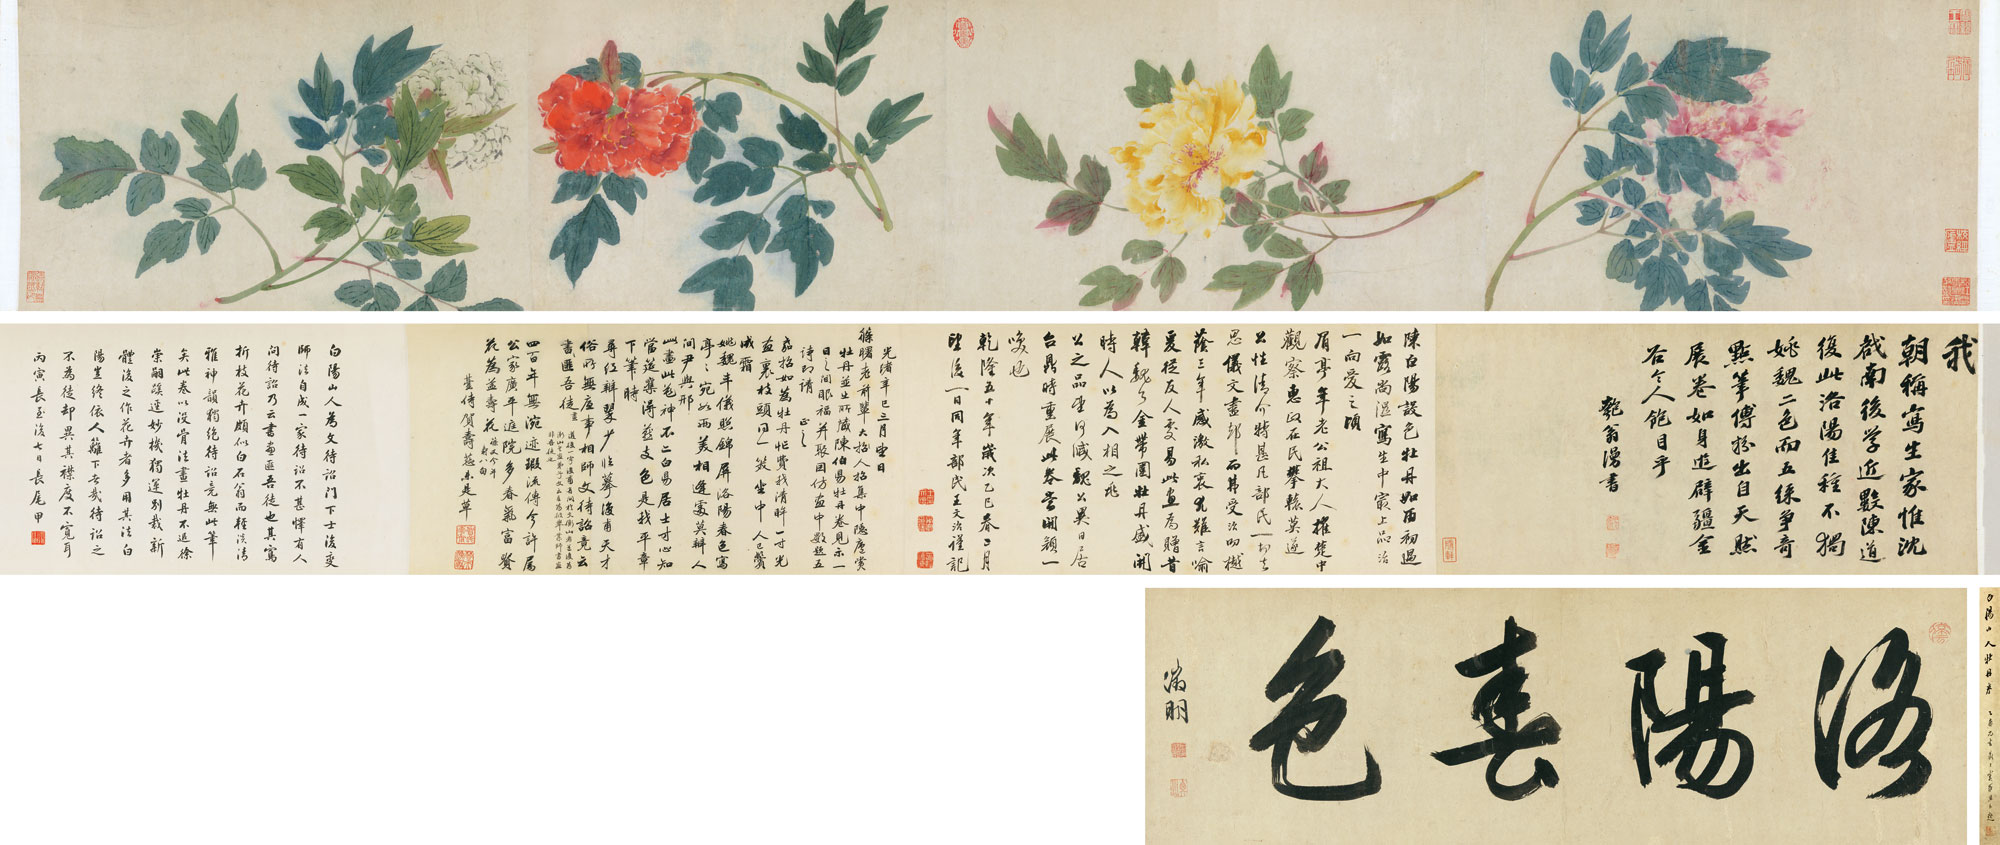 我
朝稱寫生家惟沈
啟南後学近數陳道
復此洛陽佳種不獨
姚魏二色而五綵争奇
點筆傅粉出自天然
展卷如身遊辟疆金
谷令人飽目乎
匏翁漫書
陳白陽設色牡丹如雨初過
如露尚溼寫生中最上品治
一向愛之頃
眉亭年老公祖大人擢楚中
觀察惠政在民攀轅莫遂
公性清介特甚凡部民一切去
思儀文盡卻而弗受治叨樾
蔭三年感激私衷難言喻
爰從友人易此画為贈昔
韓魏公金帶圍牡丹盛開
時人以為入相之兆
公之品望何減魏公異日居
台鼎時重展此卷當開顏一
笑也
乾隆五十年歲次乙巳春二月
望後一日同年部民王文治謹記
光緒辛巳三月望日
篠曙老前輩大人招集中隱庵賞
牡丹並出所藏陳伯易牡丹卷見示一
日之間眼福并聚因仿画中數題五
詩即請 正之
嘉招如為牡丹忙費我清眸一寸光
画裏枝頭同一笑坐中人已鬢
成霜
姚魏丰儀照錦屏洛陽春色寫
亭亭宛如兩美相逢處莫辨人
間尹與邢
此畫此花神不二白易居士寸心知
當筵樂得燕支色是我平章
下筆時
俗所無底事相師文待詔竟云
書画匪吾徒
四百年無浣迹瑕流傳今許屬
公家廣平庭院多春氣富貴
花為益壽花
賀壽慈未是草
白陽山人為文待詔門下士後變
師法自成一家待詔不甚懌有人
问待詔乃云書畫匪吾徒也其寫
折枝花卉頗似白石翁而輕淡清
雅神韻獨絕待詔竟無此筆
矣此卷以沒骨法畫牡丹不近徐
崇嗣蹊逕妙機獨運別裁新
體後之作花卉者多用其法白
陽豈終依人籬下者哉待詔之
不為徒却異其襟度不寬耳
丙寅長至後七日長尾甲
白陽山人牡丹卷
洛陽春色
徵明